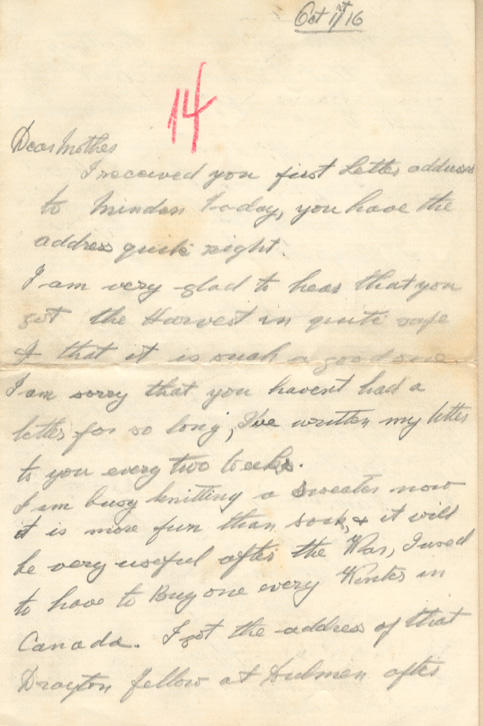 Oct 1st/16
14
Dear Mother
I received you first Letter address
to Minden today, you have the
address quite right.
I am very glad to hear that you
got the Harvest in quite safe
& that it is such a good one
I am sorry that you havent had a
letter for so long, I've written my letter
to you every two weeks.
I am busy knitting a sweater now
it is more fun than socks, & it will
be very useful after the War, I used
to have to Buy one every Winter in
Canada. I got the address of that
Drayton fellow at Dulmen after